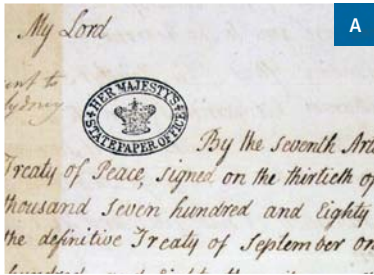 A
My Lord
ent to
Sydney
HER MAJESTY'S
STATE PAPER OFFICE
By the seventh Arti
Treaty of Peace, signed on the thirtieth of
thousand seven hundred and Eighty
the definitive Treaty of September on
hundred and Eighty